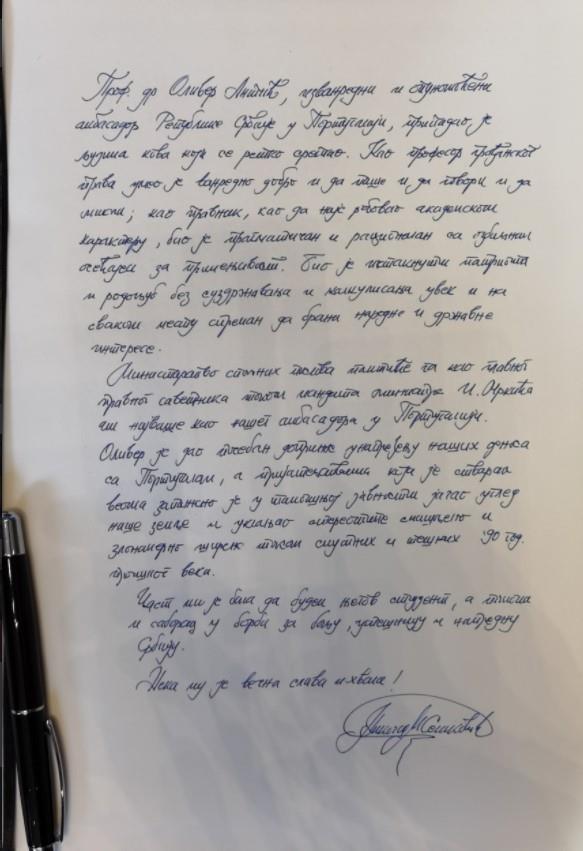 Проф. др Оливер Антић, изванредни и опуномоћени
амбасадор Републике Србије у Португалији, припадао је
људима кова који се ретко срећао. Као професор грађанског
права умео је ванредно добро и да пише и да говори и да
мисли; као правник, као да није робовао академском
карактеру, био је прагматичан и рационалан са
осећајем за применљивост. Био је истакнути патриота
и родољуб без суздржавања и калкулисања увек и на
сваком месту спреман да брани народне и државне
интересе.
Министарство спољних послова га као главног
правног саветника током мандата министра И. Мркића
али најпаше као нашег амбасадора у Португалији.
Оливер је дао посебан допринос унапређењу наших односа
са Португалом, а пријатељствима која је стварао
веома запажено је у тамошњој јавности јачао углед
наше земље и уклањао смишљено и
злонамерно током смутних и тешких 90 год.
прошлог века.
Част ми је била да будем његов студент, а
и саборац у борби за бољу, успешнију и напредну
Србију.
Нека му је вечна слава и хвала!